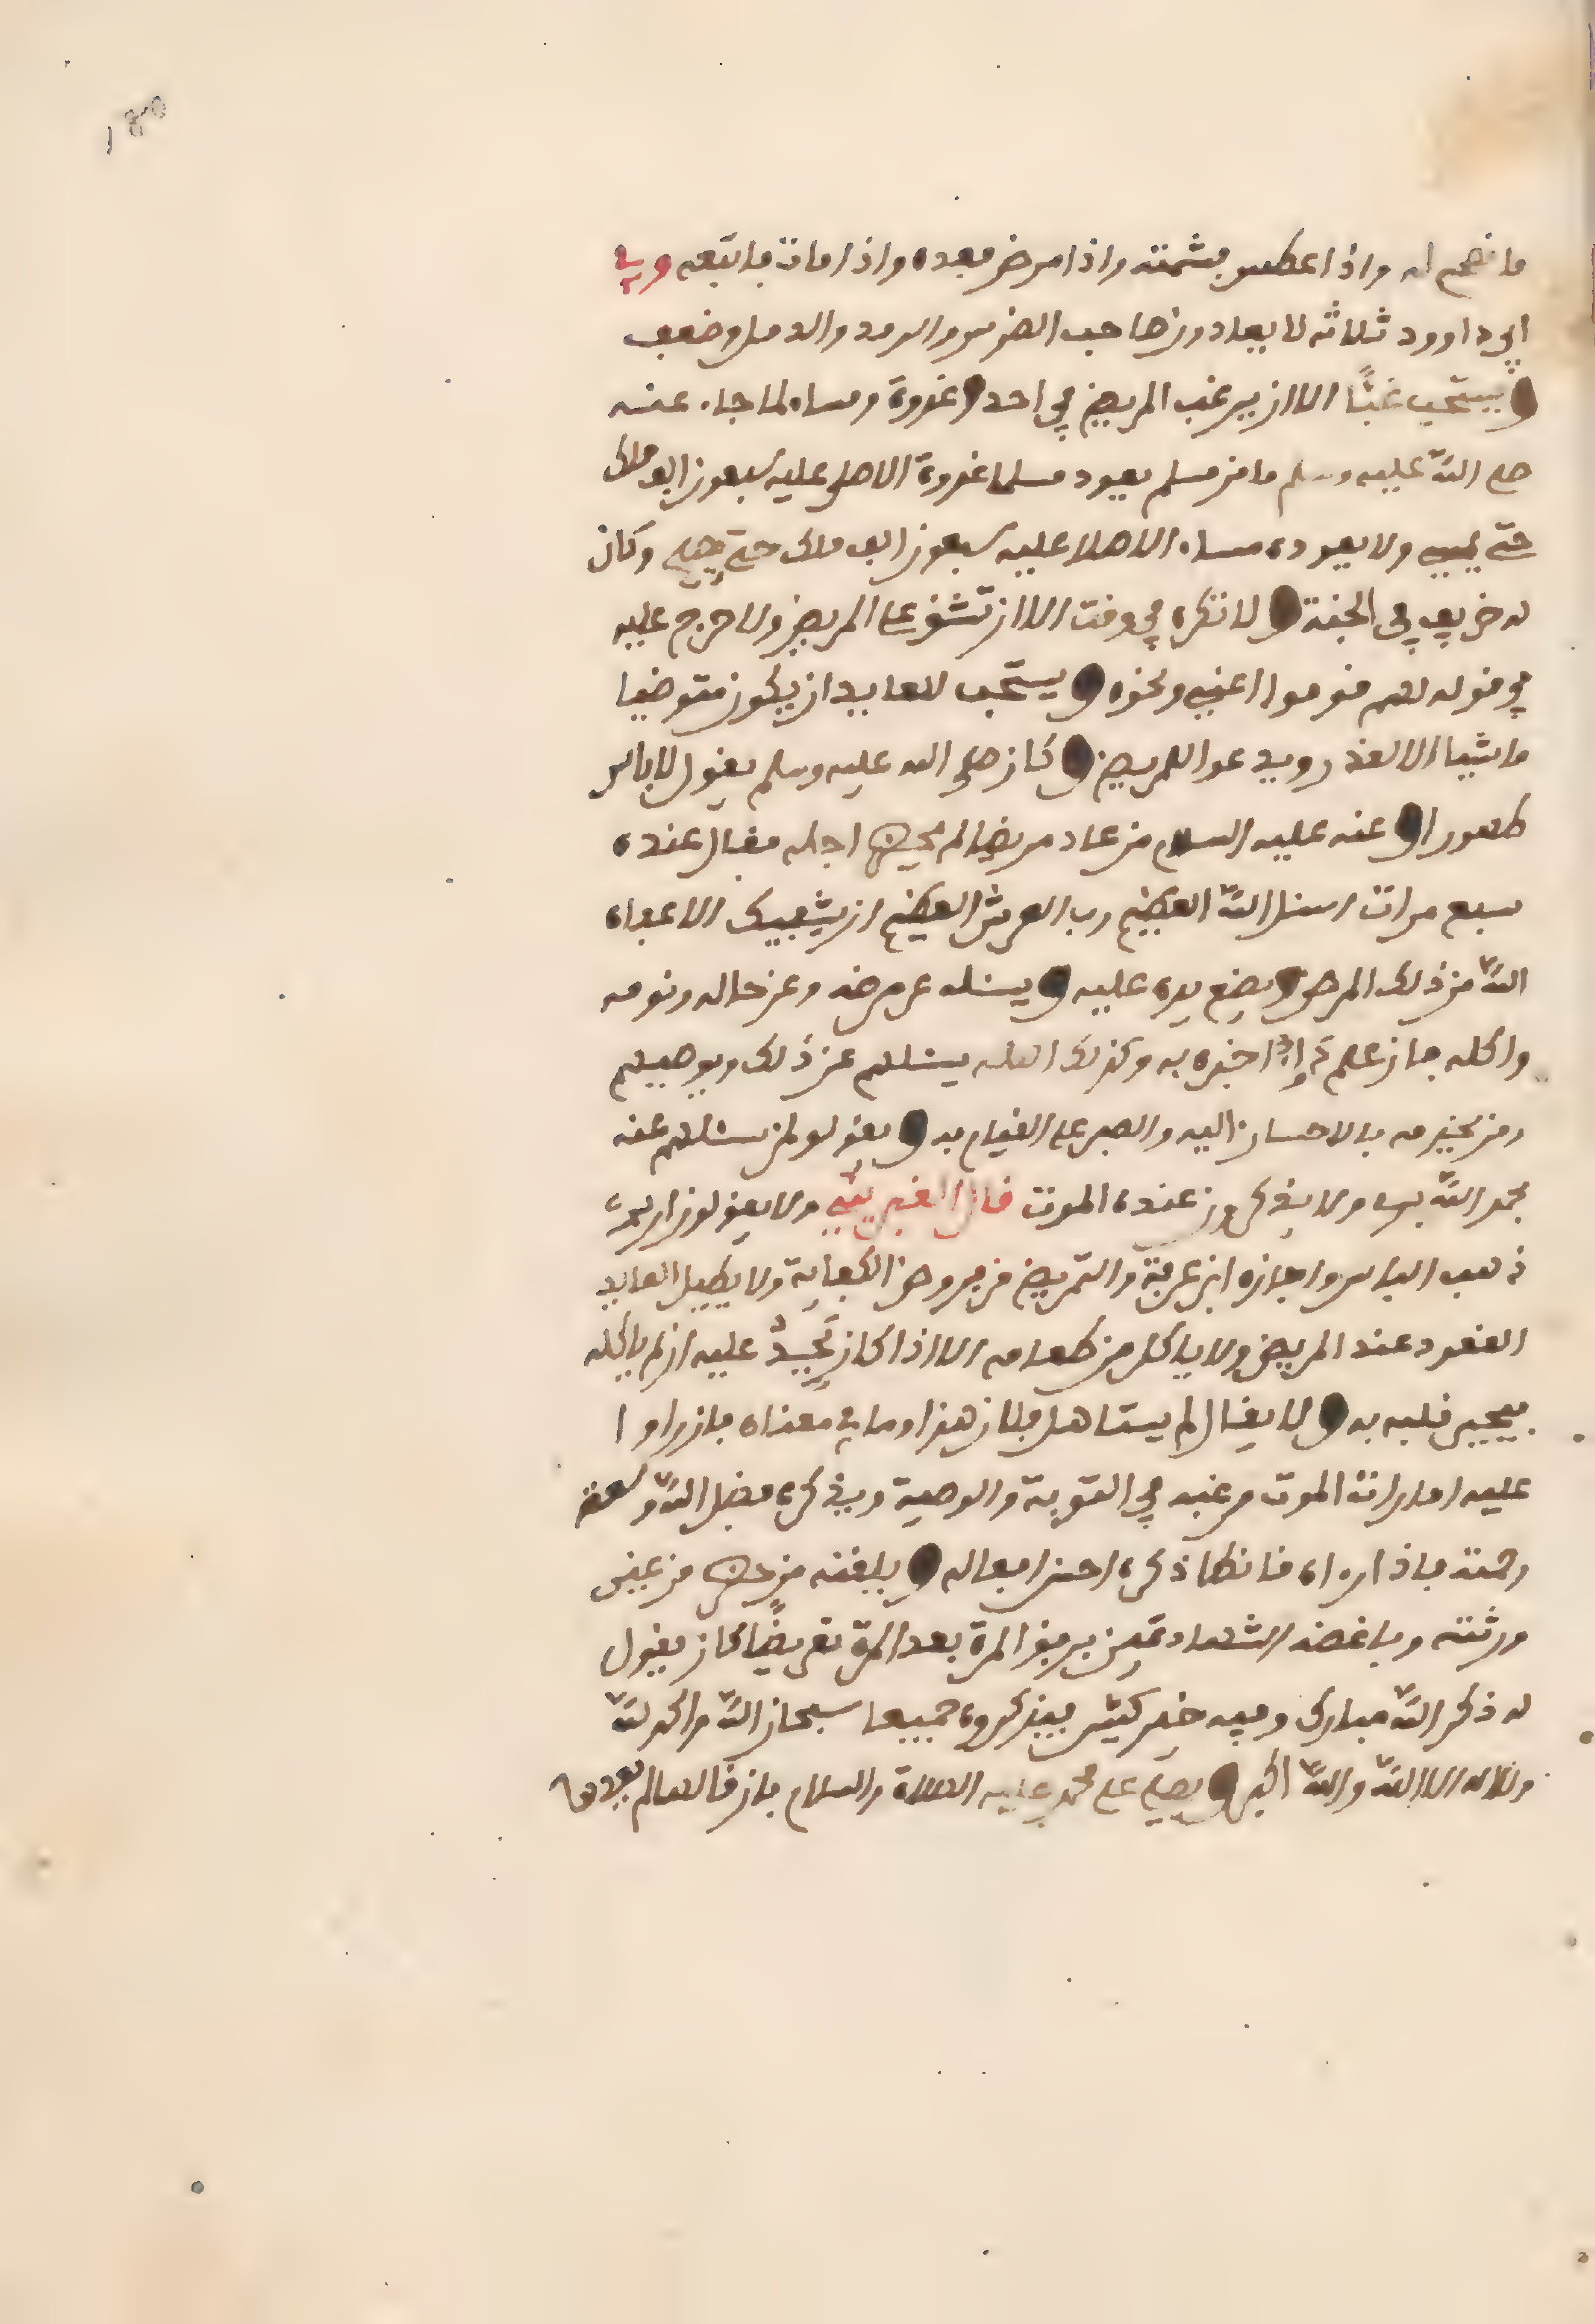 فانصح له واذا عطس فشمته واذا مرض فعده واذا مات فاتبعه وفي
ابي داوود ثلاثة لا يعادون صاحب الضرس والرمد والدمل وضعف
ويستحب غبًّا الا ان يرغب المريض في احد وغدوة ومساء لما جاء عنه
صلى اللّه عليه وسلم ما من مسلم يعود مسلما غدوة الا صلى عليه سبعون الف ملك
حتى يمسي ولا يعوده مساء الا صلا عليه سبعون الف ملك حتى يصبح وكان
له خريف في الجنة ولا تكره في وقت الا ان تشق على المريض ولا حرج عليه
في قوله لهم قوموا اعني ونحوه ويستحب للعايد ان يكون متوضيا
ماشيا الا لعذر ويدعو للمريض وكان صلى الله عليه وسلم يقول لا باس
طهورا وعنه عليه السلام من عاد مريضا لم يحضر اجله فقال عنده
سبع مرات اسئل اللّه العظيم رب العرش العظيم ان يشفيك الا عافاه
اللّه من ذلك المرض ويضع يده عليه ويسئله عن مرضه وعن حاله ونومه
واكله فان علم دواء اخبره به وكذلك اهله يسئلهم عن ذلك ويوصيهم
ومن يخدمه بالاحسان اليه والصبر على القيام به ويقولو لمن سئلهم عنه
بحمد اللّه برء ولا يذكرون عنده الموت قال الغبريني ولا يقولون اربد
ذهب الباس واجازه ابن عرفة والتمريض من فروض الكفاية ولا يطيل العايد
القعود عند المريض ولا ياكل من طعامه الا اذا كان يجد عليه ان لم ياكله
فيجبر قلبه به ولا يقال لم يستاهل فلان هذا وما في معناه فان راوا
عليه امارات الموت رغبه في التوبة والوصية ويذكره فضل اللّه وسعة
رحمته فاذا رءاه قانطا ذكره احسن افعاله ويلقنه من حضر من غير
ورثته وباغضه الشهادتين برفق المرة بعد المرة تعريضًا كان يقول
له ذكر اللّه مبارك وفيه خير كثير فيذكروه جميعا سبحان اللّه والحمد للّه
ولا اله الا اللّه واللّه اكبر ويصلي على محمد عليه الصلاة والسلام فان قالها لم يعدها